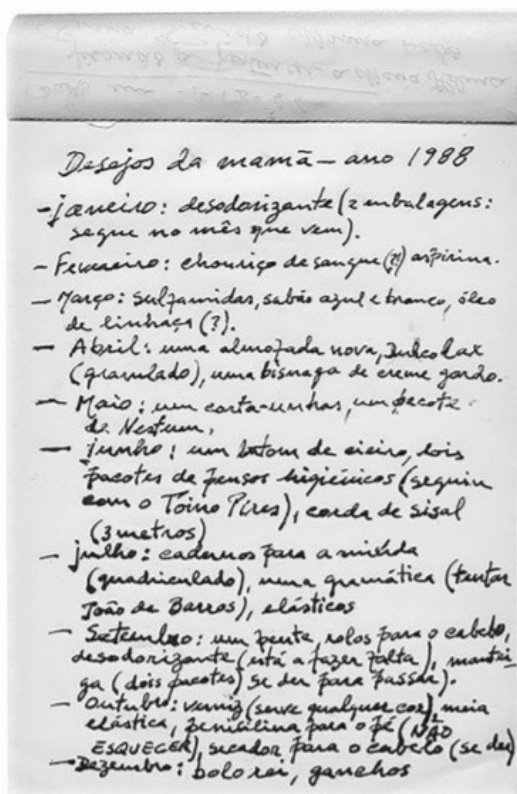 Desejos da mamã — ano 1988
- janeiro: desodorizante (2 embalagens:
segue no mês que vem).
- Fevereiro: chouriço de sangue (?!) aspirina.
- Março: sulfamidas, sabão azul e branco, óleo
de linhaça (?).
- Abril: uma almofada nova, Dulcolax
(granulado), uma bisnaga de creme gordo.
- Maio: um corta-unhas, um pacote
de Nestum,
- junho: um batom de cieiro, dois
pacotes de pensos higiénicos (seguiu
com o Toino Pires), corda de sisal
(3 metros)
- julho: cadernos para a miúda
(quadriculado), uma gramática (tentar
João de Barros), elásticos
- Setembro: um pente, rolos para o cabelo,
desodorizante (está a fazer falta), mantei-
ga (dois pacotes) se der para passar).
- Outubro: verniz (serve qualquer cor), meia
elástica, penicilina para o pé (NÃO
ESQUECER), secador para o cabelo (se der)
- Dezembro: bolo rei, ganchos